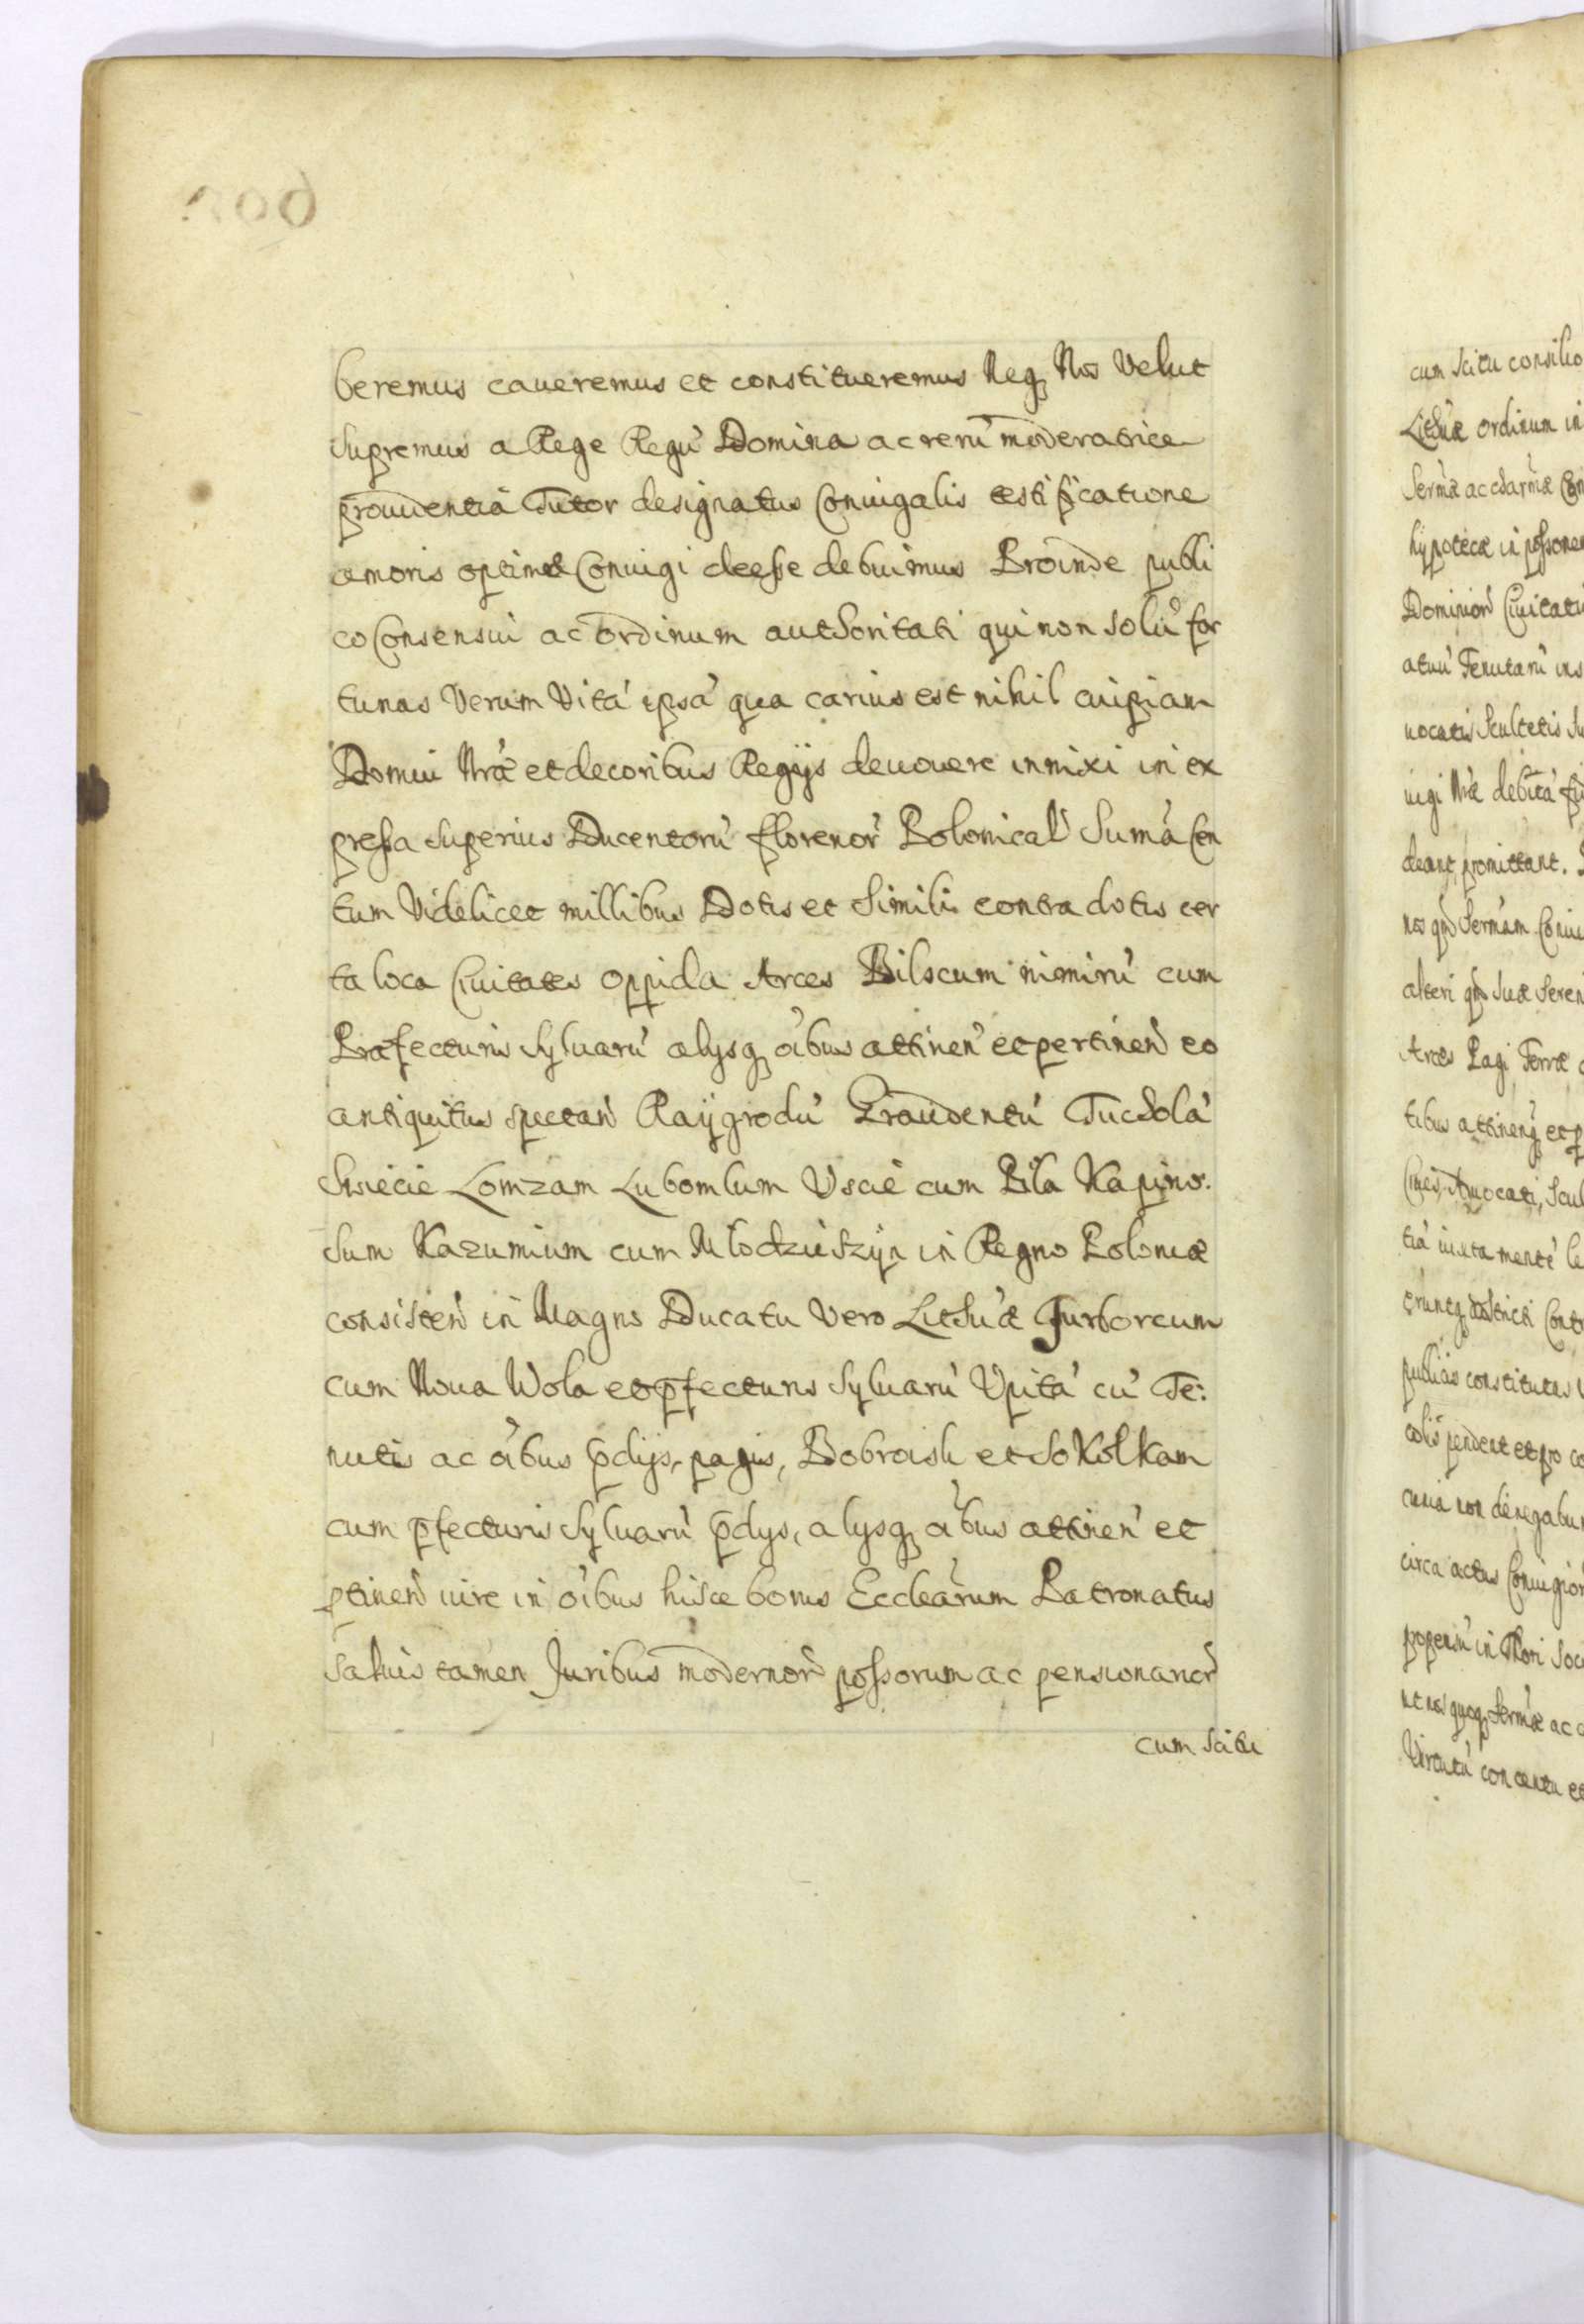 beremus caueremus et constitueremus Neq3 Nos Velut
Supremus a Rege Regu' Domina ac reru' moderatrice
prouidentia Tutor designatus Coniugalis testificatione
amoris optimæ Coniugi deesse debuimus Proinde publi
co Consensui ac ordinum authoritati qui non solu' for
tunas Verum Vita' ipsa' qua carius est nihil cuipiam
Domui Nr'æ et decoribus Regijs deuouere innixi in ex
pressa superius Ducentoru' florenor' Polonical' Suma' Cen
tum Videlicet millibus Dotis et Simili contra dotis cer
ta loca Ciuitates oppida Arces Bilscum nimiru' cum
Præfecturis Syluaru' alysq3 oi'bus attinen' et pertinen' eo
antiquitus spectan' Raygrodu' Graudentu' Tucholа'
Swiecie Lomzam Lubomlum Uscie cum Pila Kapino.
sum Kazumium cum Młodzieszyn in Regno Poloniæ
consisten' in Magno Ducatu Vero Lithu'æ Jurborcum
cum Noua Wola et p̄fecturis Syluaru' Upita' cu' Te:
nutis ac oi'bus p̄dijs, pagis, Bobroisk et Sokołkam
cum p̄fecturis Syluaru' p̄dys, alysq3 oi'bus attinen' et
ptinen' iure in oi'bus hisce bonis Ecclear'um Patronatus
Saluis tamen Juribus modernor' possorum ac pensionarior'
cum scitu
cum scitu consilio
Lithu'æ ordinum in
Serm'æ ac charm'æ Con
hypotecæ in
Dominior' Ciuitatu
Tenutaru' ins
uocatis Scultetis Su
iugi Nr'æ debita'
deant, promittant.
nos Serm'am Coniu
alteri Suæ Seren
Arces Pagi Terræ
tibus attinen3 et p
Ciues, Aduocati, Scul
tia' iuxta mente' le
Contr
publicas constitutas
pendent et pro co
curia non denegabu
circa actus Coniugior
in Thori Soci
ut nos quoq3 Serm'æ ac c
Virtutu' concentu et